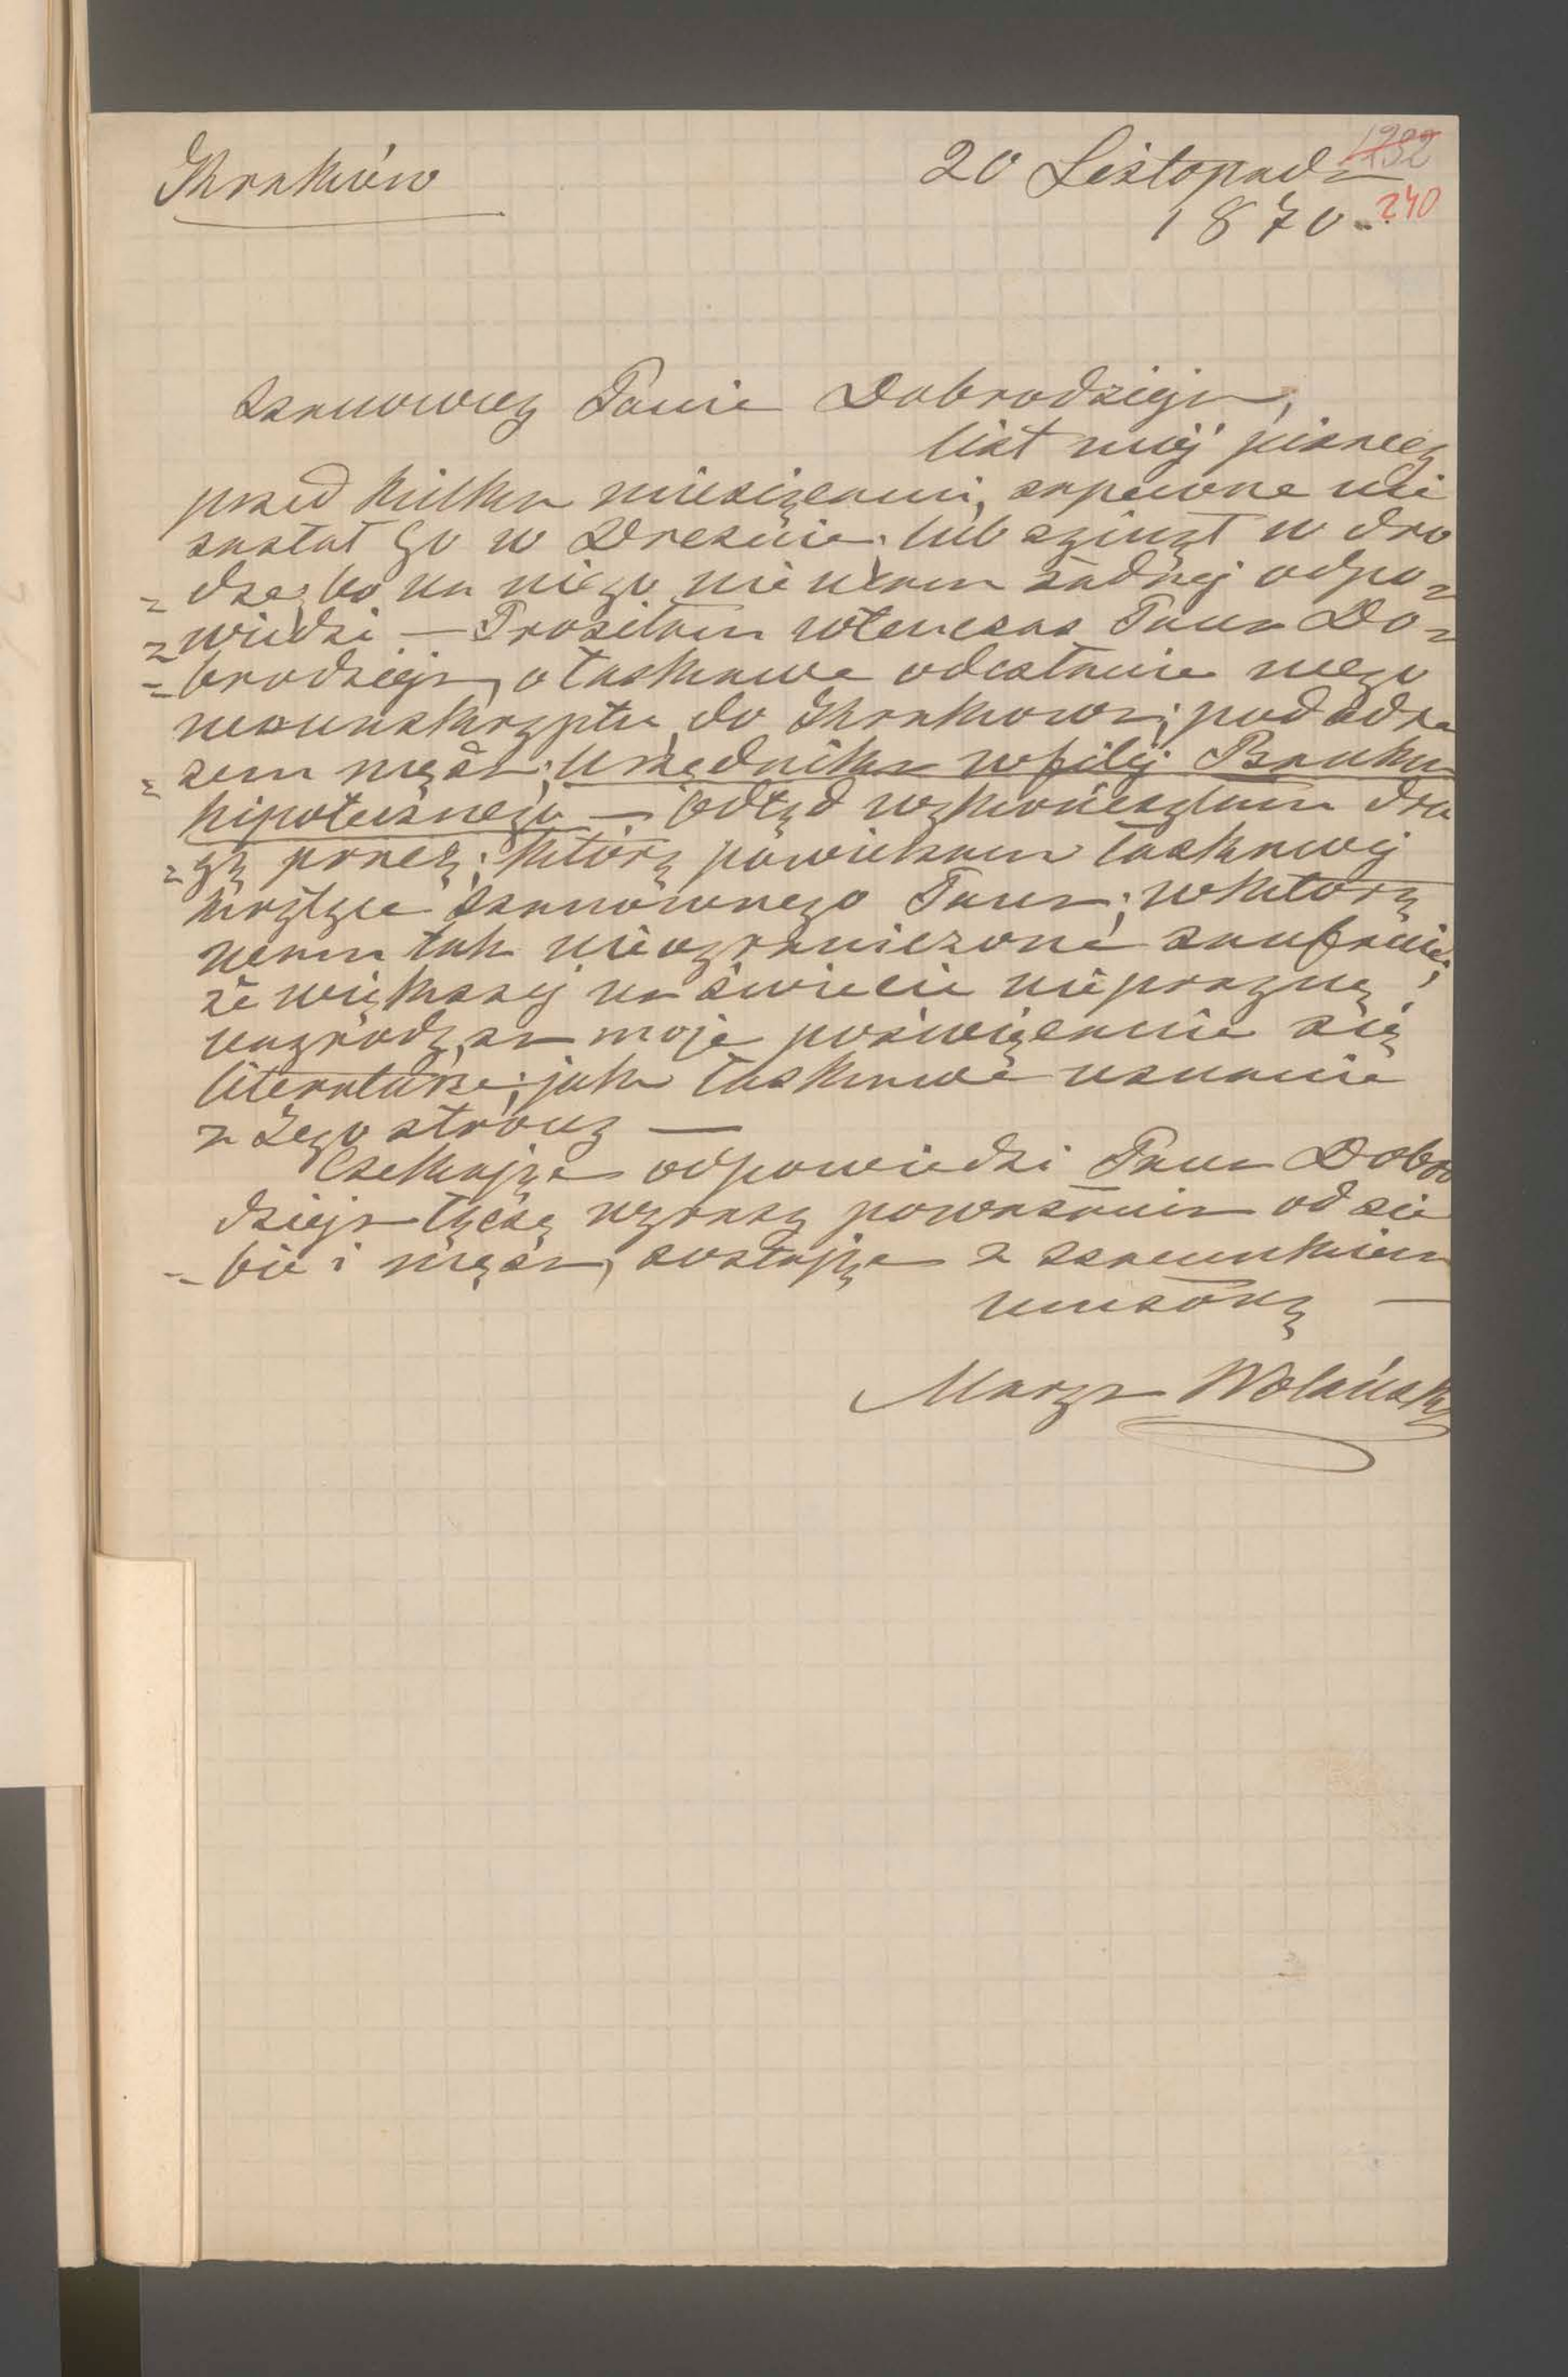 Kraków
20 Listopada
1870.
1232
240
Szanowny Panie Dobrodzieju,
list mój pisany
przed kilku miesiącami, zapewne nie
zastał Go w Dreznie; lub zginął w dro
= dze, bo na niego nie mam żadnej odpo=
= wiedzi — Prosiłam wtenczas Pana Do=
= brodzieja, o łaskawe odesłanie mego
manuskryptu, do Krakowa; pod adre
= sem męża; urzędnika w filij Banku
hipotecznego — Odtąd wykończyłam dru
= gą pracę; którą powierzam łaskawej
krytyce Szanownego Pana; w którą
mam tak nieograniczone zaufanie,
że większej na świecie nie pragnę
nagrody, za moje poświęcenie się
literaturze; jak łaskawe uznanie
z Jego strony —
Czekając odpowiedzi Pana Dobro
dzieja łączę wyrazy poważania od sie
= bie i męża, zostając z szacunkiem
uniżoną —
Marya Wolańska